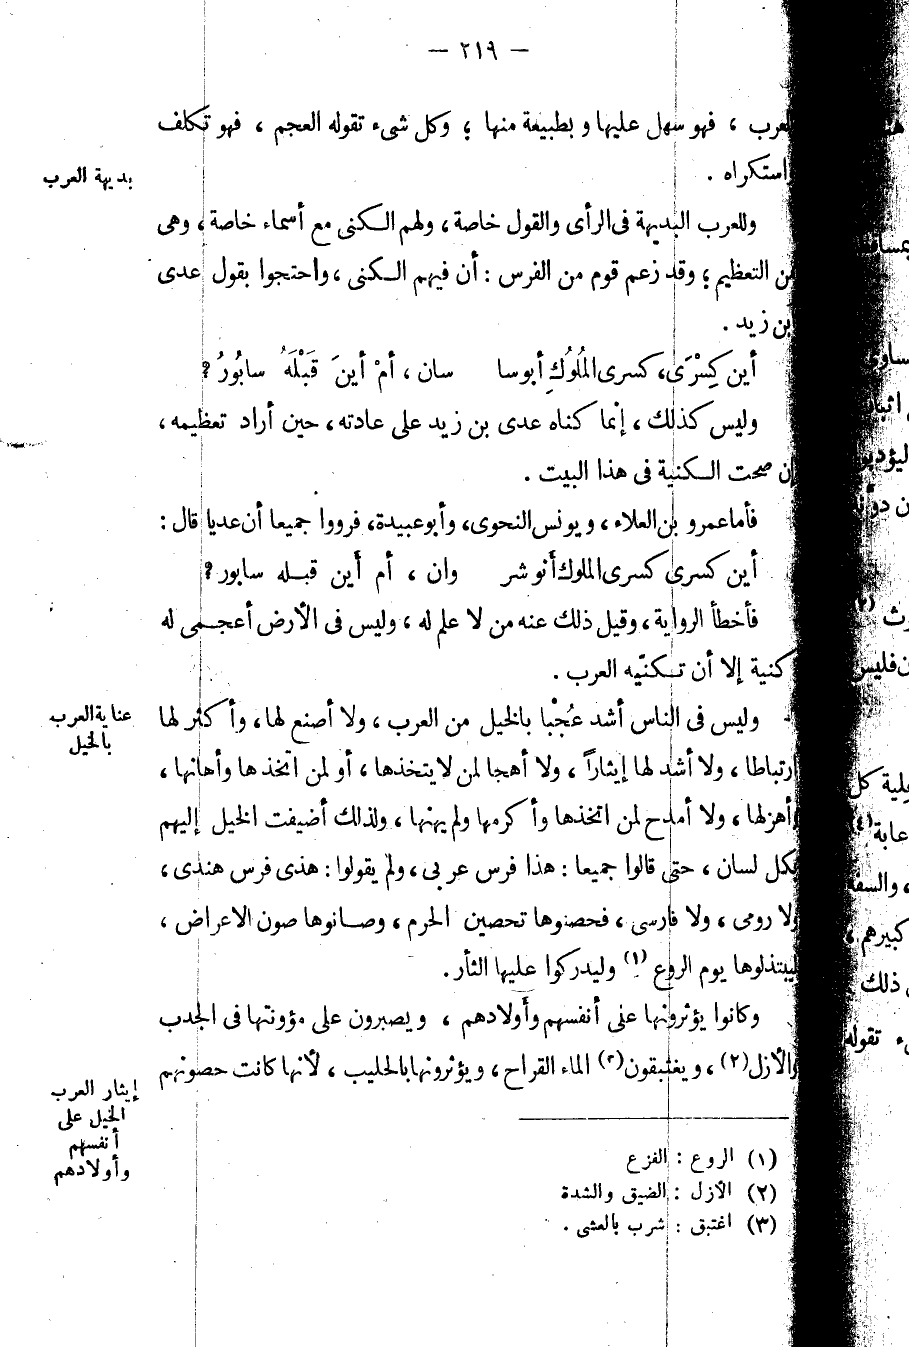 — ٢١٩ —
العرب ، فهو سهل عليها و بطبيعة منها ؛ وكل شىء تقوله العجم ، فهو تكلف
واستكراه .
بديهة العرب
وللعرب البديهة فى الرأى والقول خاصة ، ولهم الكنى مع أسماء خاصة ، وهى
من التعظيم ؛ وقد زعم قوم من الفرس : أن فيهم الكنى ، واحتجوا بقول عدى
بن زيد .
أين كِسْرَى، كسرى المُلُوكِ أبوسا سان ، أمْ أينَ قَبْلَهُ سابُورُ؟
وليس كذلك ، إنما كناه عدى بن زيد على عادته ، حين أراد تعظيمه ،
إن صحت الكنية فى هذا البيت .
فأما عمرو بن العلاء ، ويونس النحوى ، وأبو عبيدة، فرووا جميعا أن عديا قال :
أين كسرى كسرى الملوك أنوشر وان ، أم أين قبله سابور؟
فأخطأ الرواية ، وقيل ذلك عنه من لا علم له ، وليس فى الأرض أعجمى له
كنية إلا أن تكنّيه العرب .
عناية العرب
بالخيل
وليس فى الناس أشد عُجْبا بالخيل من العرب ، ولا أصنع لها، وأكثر لها
ارتباطا ، ولا أشد لها إيثاراً ، ولا أهجا لمن لا يتخذها ، أو لمن اتخذها وأهانها ،
وأهزلها ، ولا أمدح لمن اتخذها وأكرمها ولم يهنها ، ولذلك أضيفت الخيل إليهم
بكل لسان ، حتى قالوا جميعا : هذا فرس عربى ، ولم يقولوا : هذى فرس هندى ،
ولا رومى ، ولا فارسى ، فحصنوها تحصين الحرم ، وصانوها صون الاعراض ،
ليبتذلوها يوم الروع (١) وليدركوا عليها الثأر .
وكانوا يؤثرونها على أنفسهم وأولادهم ، ويصبرون على مؤونتها فى الجدب
والأزل (٢) ، ويغتبقون (٣) الماء القراح ، ويؤثرونها بالحليب ، لأنها كانت حصونهم
إيثار العرب
الخيل على
أنفسهم
وأولادهم
(١) الروع : الفزع
(٢) الأزل : الضيق والشدة
(٣) اغتبق : شرب بالعشى .